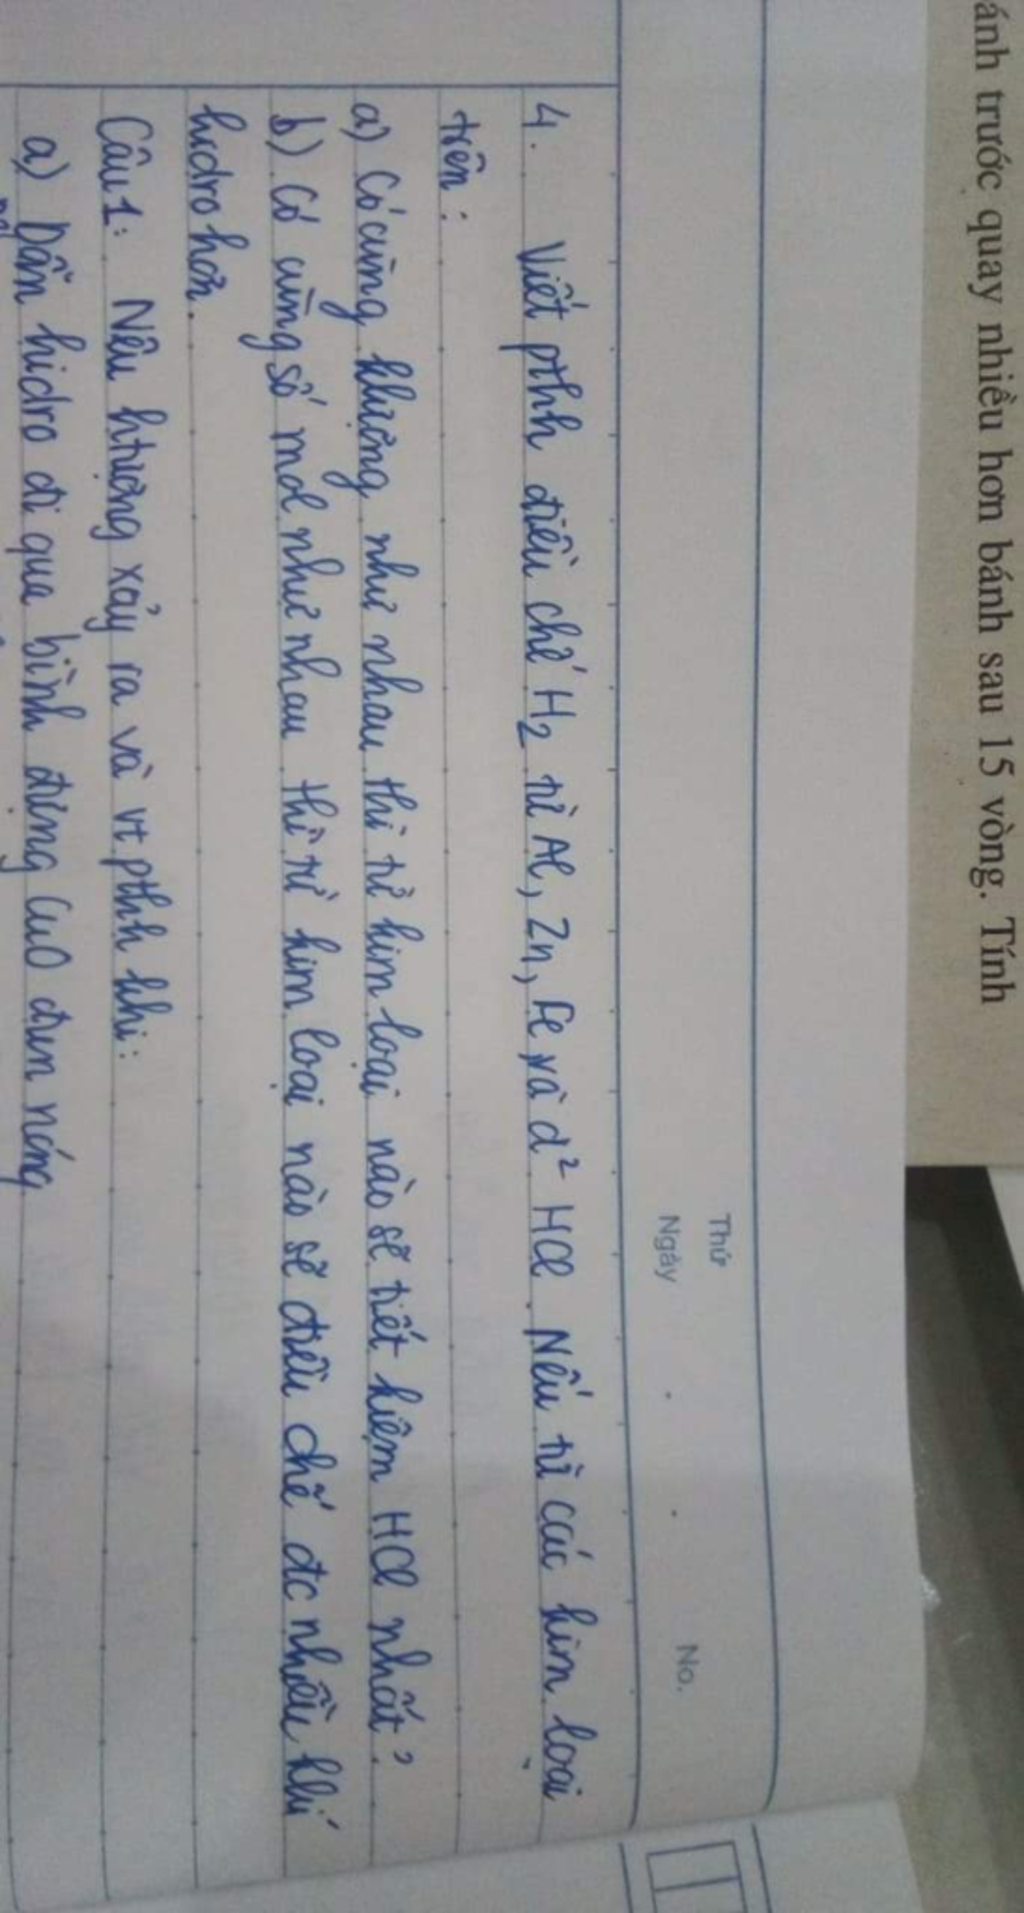 ánh trước quay nhiều hơn bánh sau 15 vòng. Tính
Thứ
Ngày No.
4. Viết pthh điều chế H2 từ Al, Zn, Fe và d² HCl. Nếu từ các kim loại
trên:
a) Có cùng klượng như nhau thì từ kim loại nào sẽ tiết kiệm HCl nhất?
b) Có cùng số mol như nhau thì từ kim loại nào sẽ điều chế đc nhiều khí
hidro hơn.
Câu 1: Nêu htượng xảy ra và vt pthh khi:
a) Dẫn hidro đi qua bình đựng CuO đun nóng